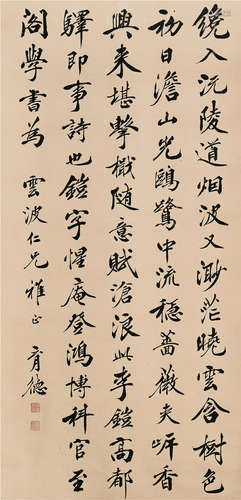 纔入沅陵道烟波又渺茫曉雲含樹色
初日澹山光鷗鷺中流穩薔薇夾岸香
興来堪擊檝随意賦滄浪此李鎧高都
驛即事詩也鎧字惺庵登鴻博科官至
閣學書為 雲波仁兄雅正 育德